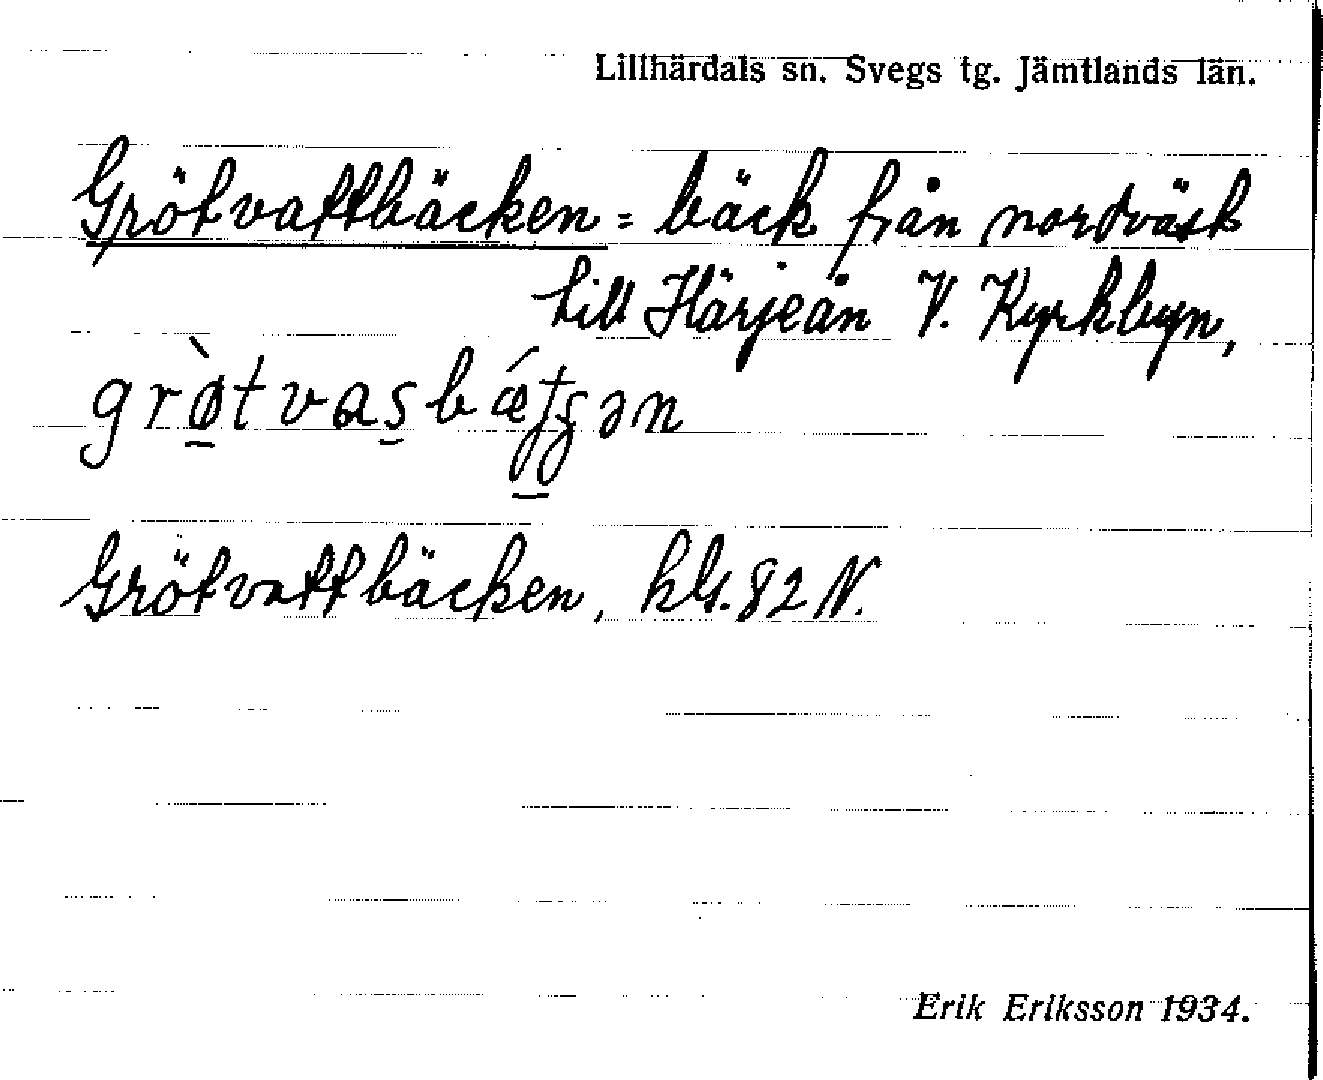 Lillhärdals sn. Svegs tg. Jämtlands län.
Grötvattbäcken = bäck från nordväst
till Härjeån V. Kyrkbyn,
grø̀tvas̱bǽtʒən
Grötvattbäcken, kbl. 82 N.
Erik Eriksson 1934.